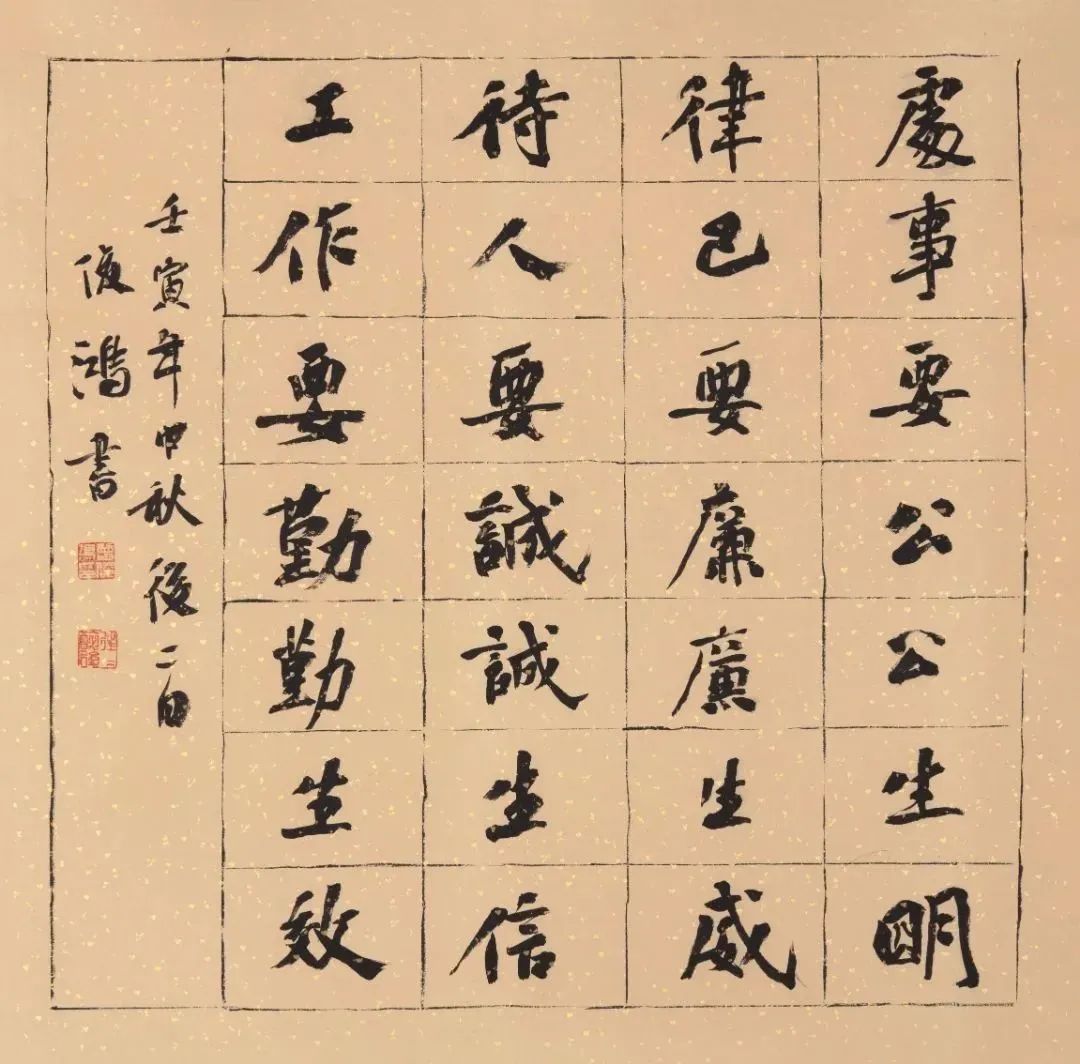 處事要公公生明
律己要廉廉生威
待人要誠誠生信
工作要勤勤生效
壬寅年中秋後二日
俊鴻書